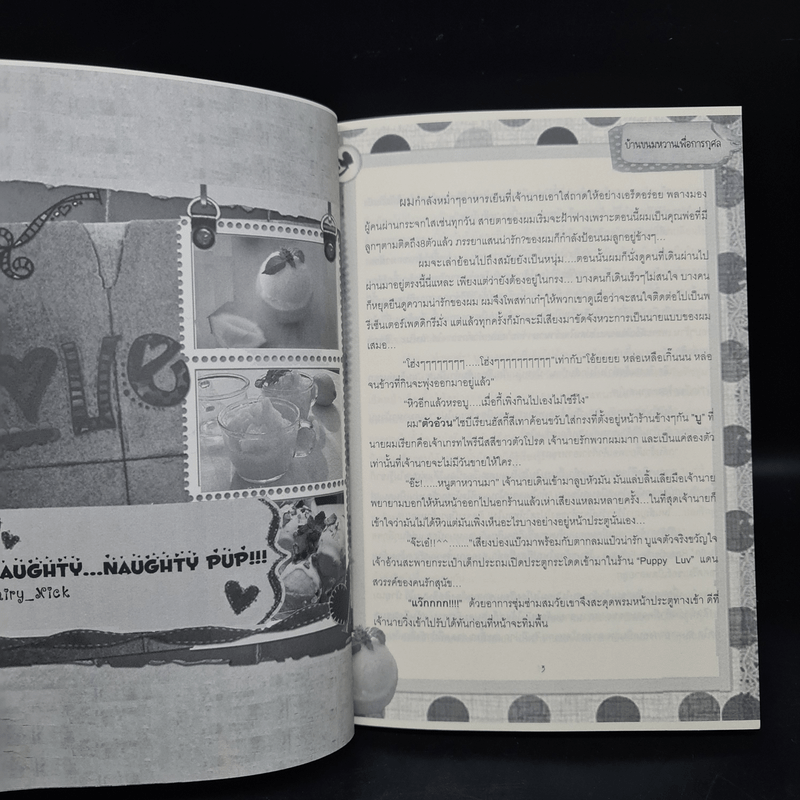 Love
AUGHTY...NAUGHTY PUP!!!
airy_Nick
บ้านขนมหวานเพื่อการกุศล
ผมกำลังหม่ำๆอาหารเย็นที่เจ้านายเอาใส่ถาดให้อย่างเอร็ดอร่อย พลางมอง
ผู้คนผ่านกระจกใสเช่นทุกวัน สายตาของผมเริ่มจะฝ้าฟางเพราะตอนนี้ผมเป็นคุณพ่อที่มี
ลูกๆตามติดถึง8ตัวแล้ว ภรรยาแสนน่ารัก?ของผมก็กำลังป้อนนมลูกอยู่ข้างๆ...
ผมจะเล่าย้อนไปถึงสมัยยังเป็นหนุ่ม....ตอนนั้นผมก็นั่งดูคนที่เดินผ่านไป
ผ่านมาอยู่ตรงนี้นี่แหละ เพียงแต่ว่ายังต้องอยู่ในกรง... บางคนก็เดินเร็วๆไม่สนใจ บางคน
ก็หยุดยืนดูความน่ารักของผม ผมจึงโพสท่าเก๋ๆให้พวกเขาดูเผื่อว่าจะสนใจติดต่อไปเป็นพ
รีเซ็นเตอร์เพดดิกรีมั่ง แต่แล้วทุกครั้งก็มักจะมีเสียงมาขัดจังหวะการเป็นนายแบบของผม
เสมอ...
"โฮ่งๆๆๆๆๆๆๆๆ.....โฮ่งๆๆๆๆๆๆๆๆๆๆ"เท่ากับ"โอ้ยยยย หล่อเหลือเกิ๊นนน หล่อ
จนข้าวที่กินจะพุ่งออกมาอยู่แล้ว"
"หิวอีกแล้วหรอบู....เมื่อกี้เพิ่งกินไปเองไม่ใช่รึไง"
ผม"ตัวอ้วน"ไซบีเรียนฮัสกี้สีเทาค้อนขวับใส่กรงที่ตั้งอยู่หน้าร้านข้างๆกัน "บู" ที่
นายผมเรียกคือเจ้าเกรทไพรีนีสสีขาวตัวโปรด เจ้านายรักพวกผมมาก และเป็นแค่สองตัว
เท่านั้นที่เจ้านายจะไม่มีวันขายให้ใคร...
"อ๊ะ!.....หนูตาหวานมา" เจ้านายเดินเข้ามาลูบหัวมัน มันแลบลิ้นเลียมือเจ้านาย
พยายามบอกให้หันหน้าออกไปนอกร้านแล้วเห่าเสียงแหลมหลายครั้ง...ในที่สุดเจ้านายก็
เข้าใจว่ามันไม่ได้หิวแต่มันเพิ่งเห็นอะไรบางอย่างอยู่หน้าประตูนั่นเอง...
"จ๊ะเอ๋!!^^......."เสียงบ่องแบ๊วมาพร้อมกับตากลมแป๋วน่ารัก บูแจตัวจริงขวัญใจ
เจ้าอ้วนสะพายกระเป๋าเด็กประถมเปิดประตูกระโดดเข้ามาในร้าน "Puppy Luv" แดน
สวรรค์ของคนรักสุนัข...
"แว๊กกกก!!!!" ด้วยอาการซุ่มซ่ามสมวัยเขาจึงสะดุดพรมหน้าประตูทางเข้า ดีที่
เจ้านายวิ่งเข้าไปรับได้ทันก่อนที่หน้าจะทิ่มพื้น